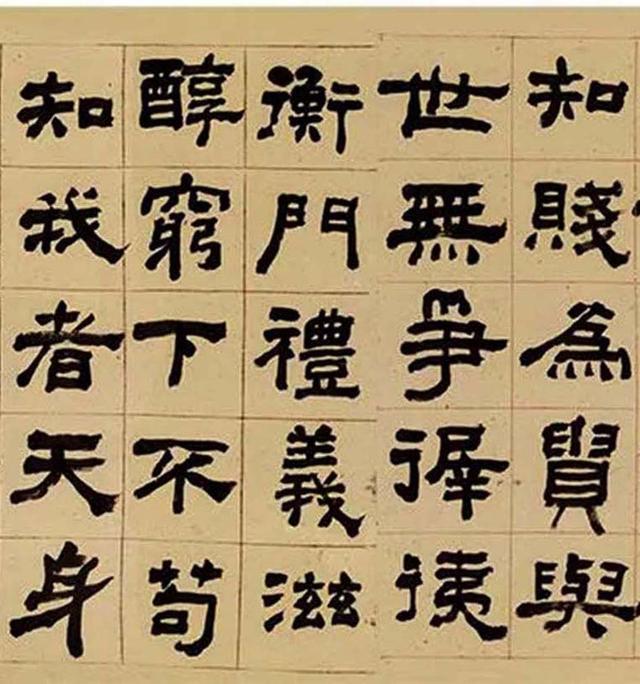 知賤為貴與
世無爭徲
衡門禮義滋
醇窮下不苟
知我者天身